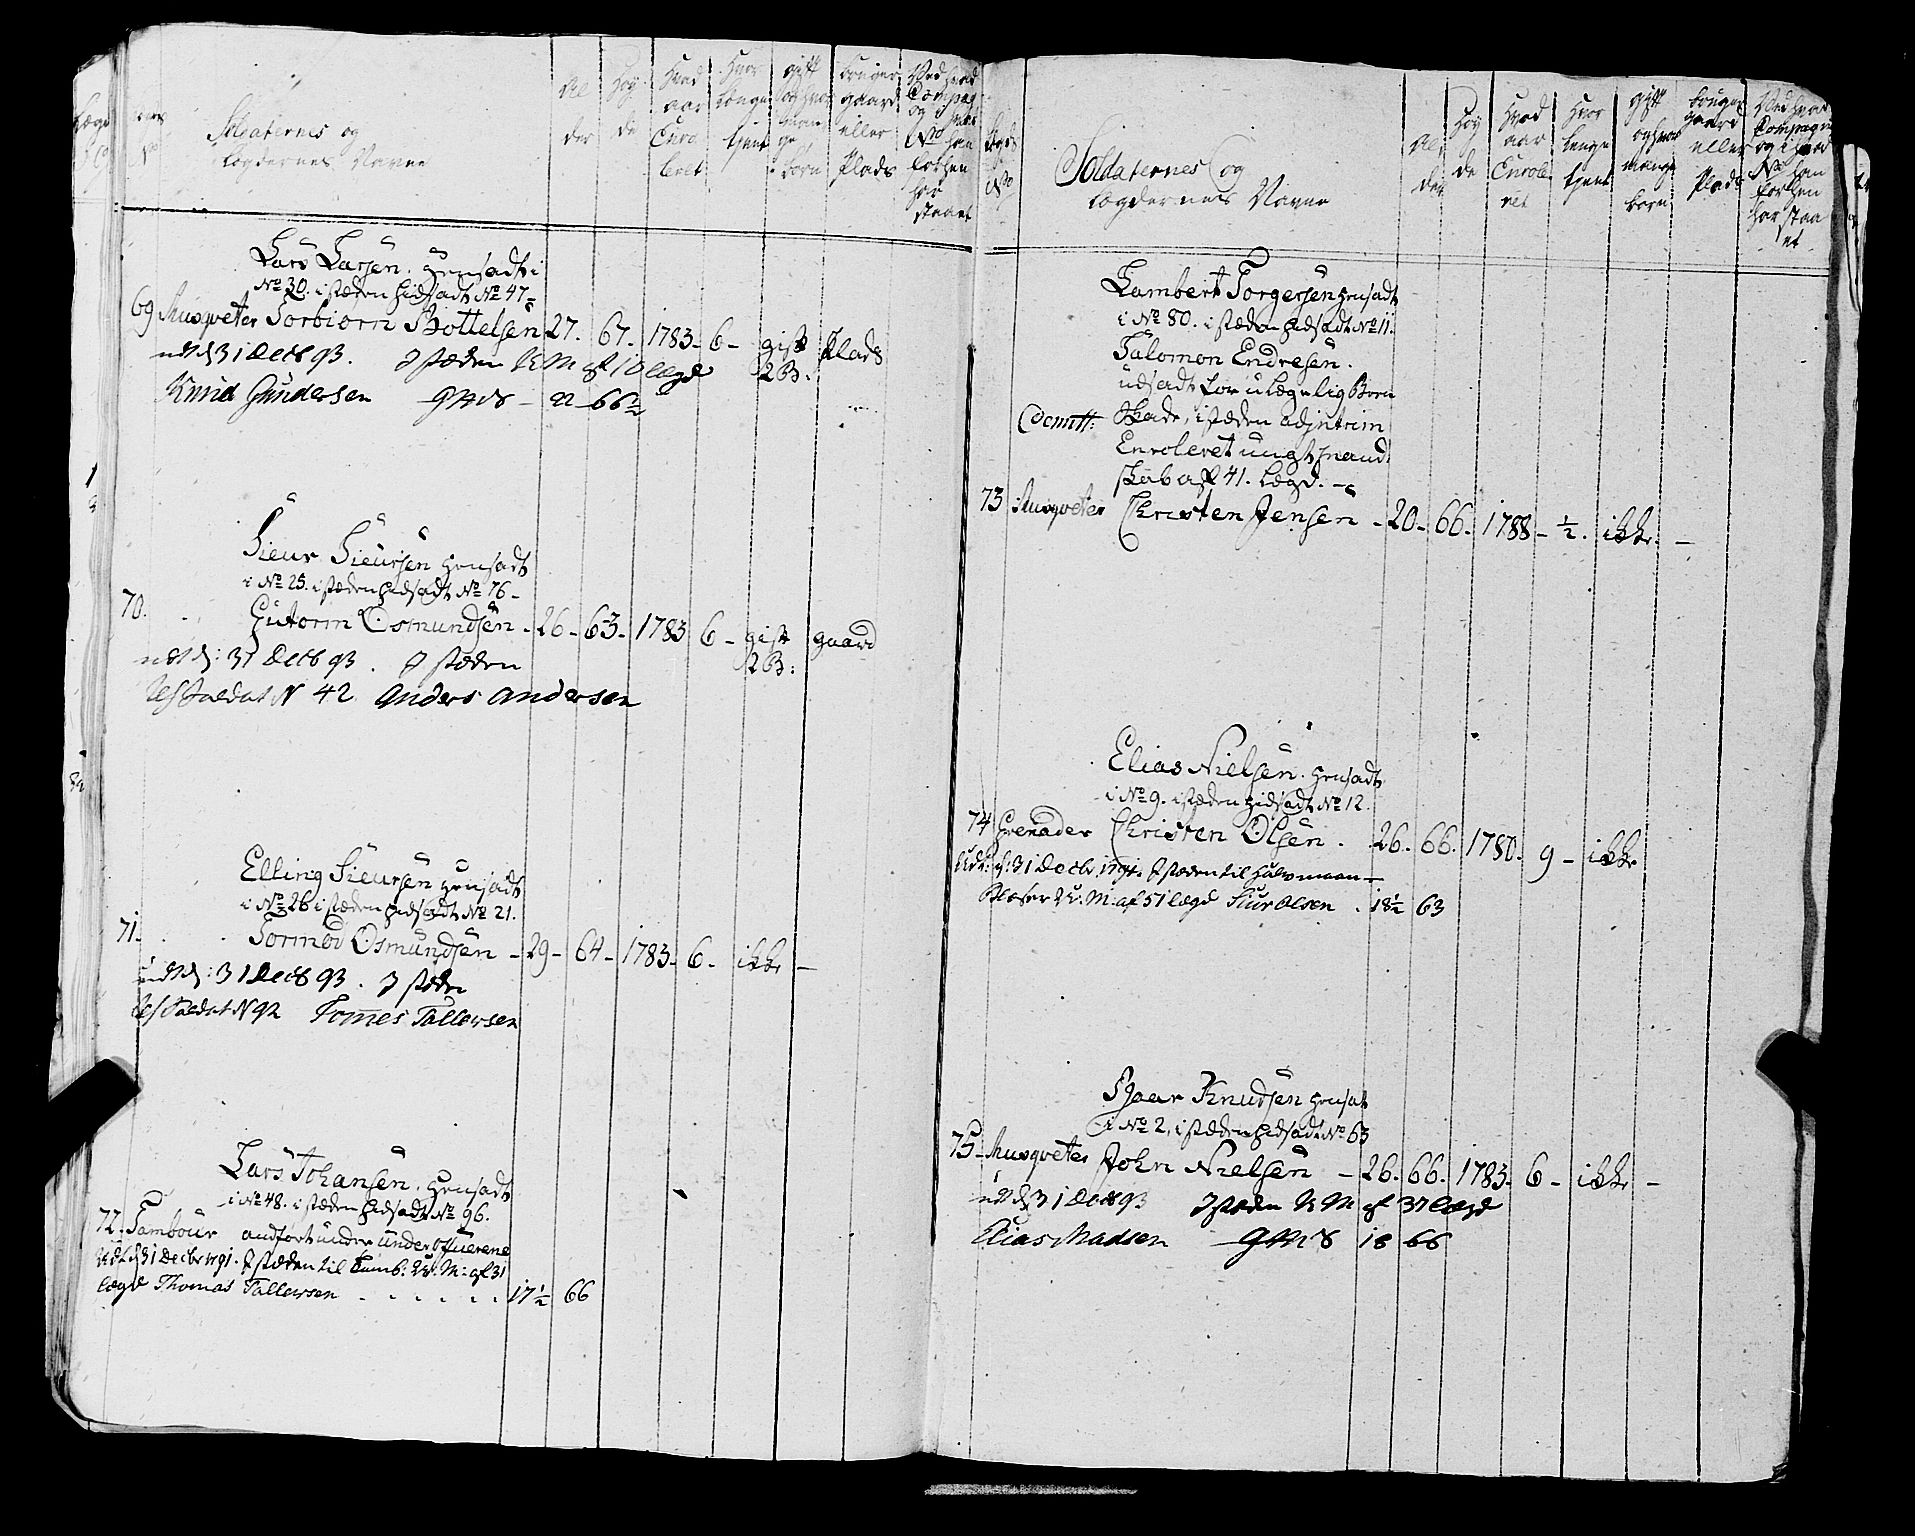 Soldaternes og
Lægdernes Navne
Al
der
Høy
de
Hvad
aar
Enro
leret
Hvor
længe
tjent
gift
og hvor
mange
børn
bruger
gaard
eller
Plads
Ved hvad
Compag
og i hvad
No han
forhen
har
staaet
Lars Larsen. hensadt i
No 30. i stæden hidsadt No 47-
69 Musqveter Torbiorn Bottelsen 27. 67. 1783- 6- gift Plads
udt d 31 Decb 93. I stæden U M af 10 lægd 2 B.
Knud Gundersen GMS - 22 - 66 1/2
Sieur Sieursen hensadt
i No 25. i stæden hidsadt No 76-
70. Gutorm Osmundsen - 26 - 63- 1783 6- gift gaard
udt d: 31 Decb 93. I stæden 2 B:
Ussoldat N 42 Anders Andersen
Elling Sieursen hensadt
i No 26 i stæden hidsadt No 21.
71. Tormod Osmundsen - 29- 64- 1783- 6- ikke -
udt d: 31 Decb 93. I stæden
Soldat N 92 Tomes Tallersen
Lars Johansen. hensadt
i No 48. i stæden hidsadt No 96.
72. Tambour andført under Under Officererne
Udt d 31 Decbr 1791. I stæden til Tamb: U: M: af 31
lægd Thomas Tallersen - - - - - - 17 1/2 66
Lægds
No
Soldaternes og
Lægdernes Navne
Al
der
Høy
de
Hvad
aar
Enrole
ret
Hvor
længe
tjent
gift
og hvor
mange
børn
bruger
gaard
eller
Plads
Ved hvad
Compagnie
og i hvad
No han
forhen
har staa
et
Lambert Torgersen hensadt
i No 80. i stæden hidsadt No 11.
Salomon Endresen.
udsadt for ulægelig Been
Skade, i stæden adjntrim
Enroleret ungt mand
skab aff 41. Lægd. -
73 Musqveter Christen Jensen - 20 - 66. 1788 - 1/2. ikke. -
Elias Nielsen. hensadt
i No 9. i stæden hidsadt No 12.
74 Grenader Christen Olsen. 26. 66. 1780. 9 - ikke
Udt: d: 31 Decbr. 1791 I stæden til Halvmaan-
blæser U: M: af 51 lægd Siur Olsen. 18 1/2 63
Knudsen hensat
i No 2, i stæden hidsadt No 63
75- Musqveter John Nielsen - 26. 66. 1783. 6 - ikke -
udt d 31 Decb 93 I stæden U M af 37 lægd
Elias Madsen GMS 18 66